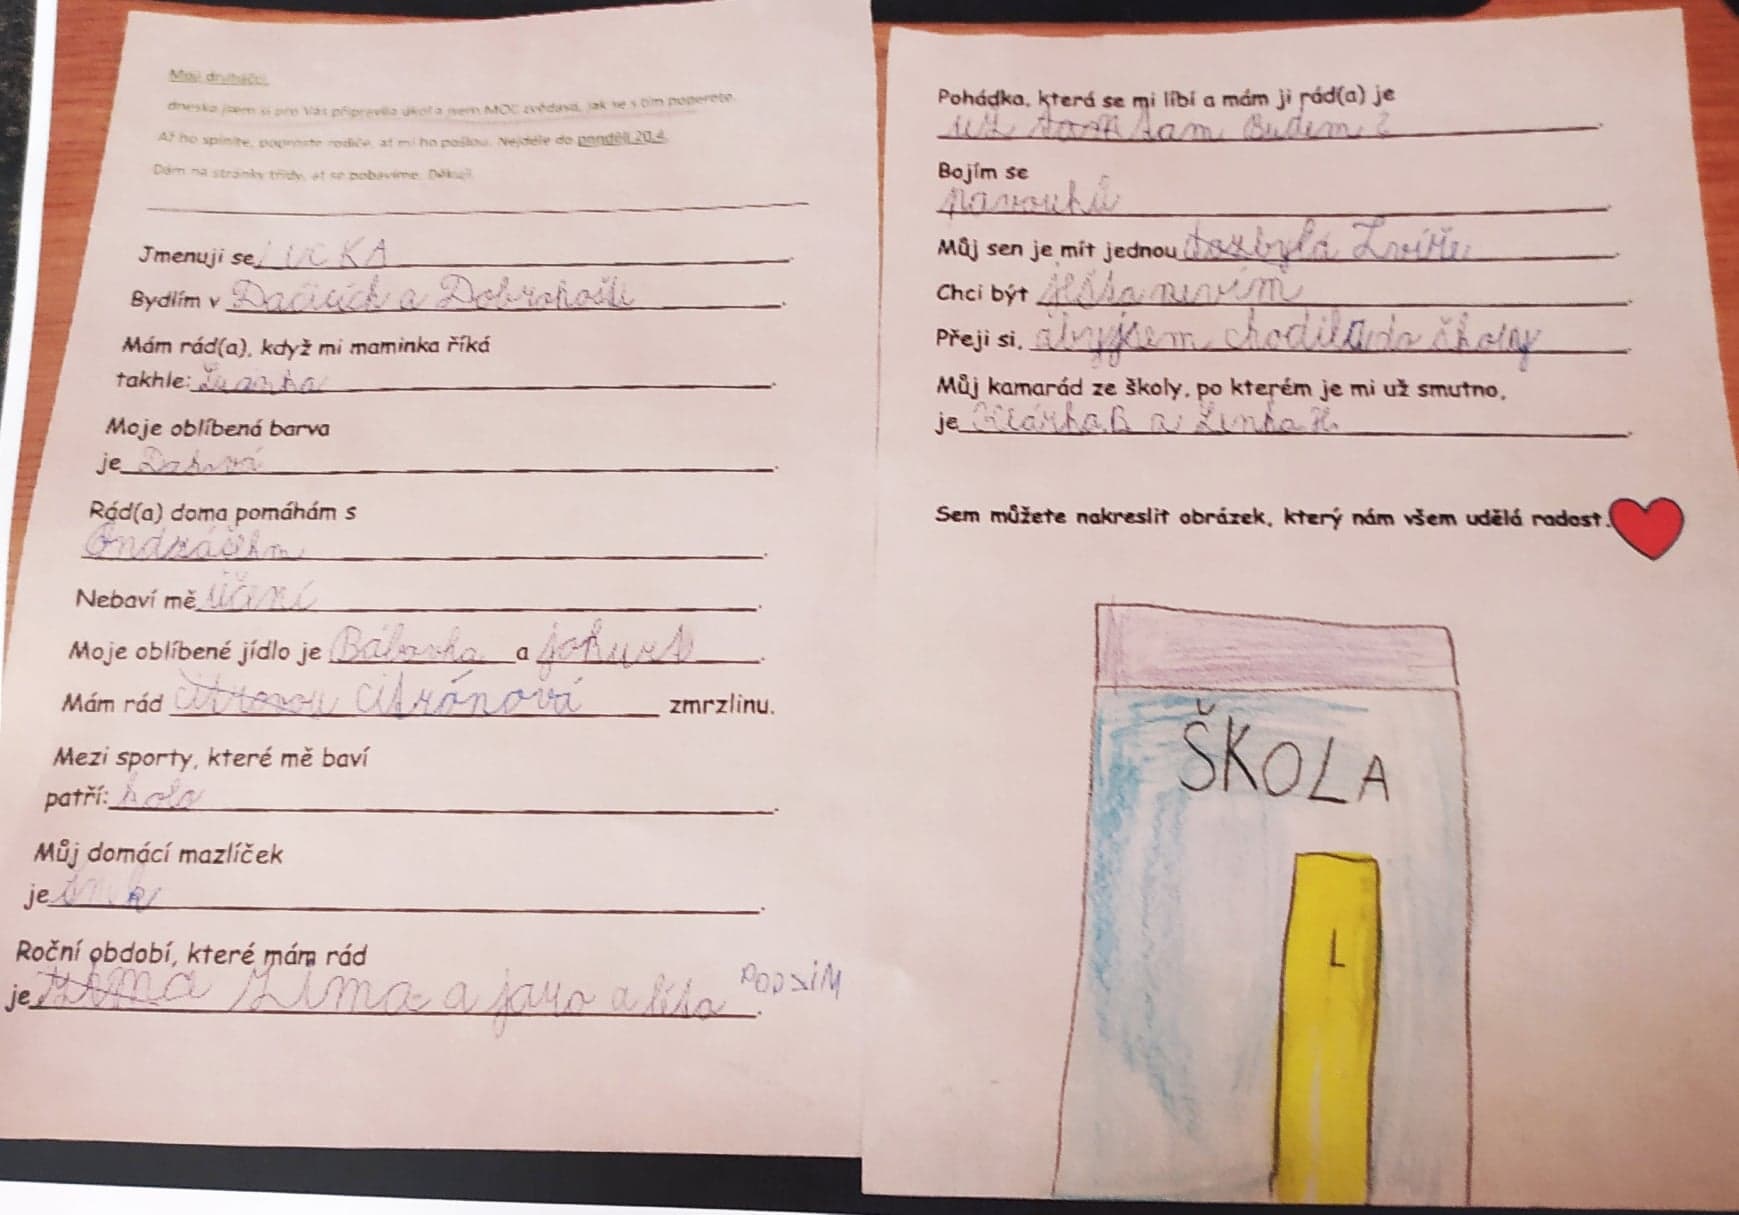 Moji druháčci,
dneska jsem si pro Vás připravila úkol a jsem MOC zvědavá, jak se s tím poperete.
Až ho splníte, poproste rodiče, ať mi ho pošlou. Nejdéle do pondělí 20.4.
Dám na stránky třídy, ať se pobavíme. Děkuji.
Jmenuji se LUCKA.
Bydlím v Dačicích a Dobrohošti.
Mám rád(a), když mi maminka říká
takhle:
Moje oblíbená barva
je
Rád(a) doma pomáhám s
Ondráčkem.
Nebaví mě učení.
Moje oblíbené jídlo je Bábovka a johurt.
Mám rád citronou citrónová zmrzlinu.
Mezi sporty, které mě baví
patří: kolo.
Můj domácí mazlíček
je
Roční období, které mám rád
je zima Zima a jaro a léto. PODZIM
Pohádka, která se mi líbí a mám ji rád(a) je
už tam Budem?
Bojím se
pavouků.
Můj sen je mít jednou Zvíře.
Chci být ješťa nevím.
Přeji si, abyjsem chodila do školy.
Můj kamarád ze školy, po kterém je mi už smutno,
je Klárka.B a Lenka H.
Sem můžete nakreslit obrázek, který nám všem udělá radost.
ŠKOLA
L